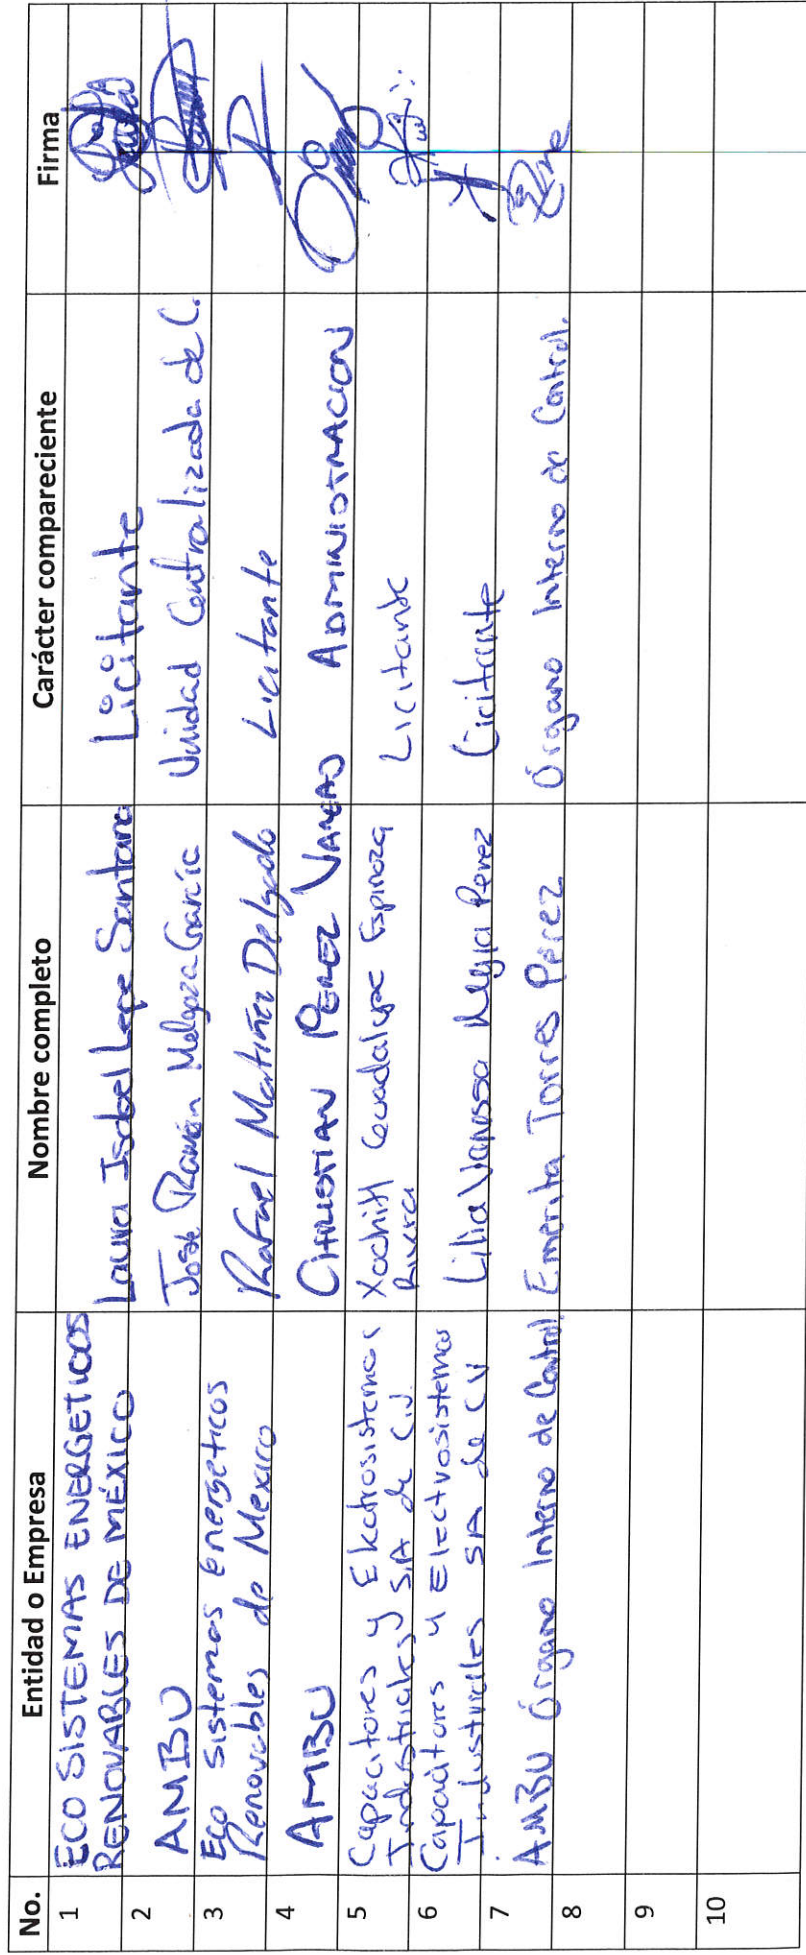 No. Entidad o Empresa Nombre completo Carácter compareciente Firma
1 ECO SISTEMAS ENERGETICOS
RENOVABLES DE MÉXICO Laura Isabel Lepe Santana Licitante
2 AMBU José Ramón García Unidad Centralizada de C.
3 Eco Sistemas Energeticos
Renovables de Mexico Rafael Martínez Delgado Licitante
4 AMBU CHRISTIAN PEREZ VARGAS ADMINISTRACION
5 Capacitores y Electrosistemas
Industriales S.A de C.V. Xochitl Guadalupe Espinoza
Rivera Licitante
6 Capacitores y Electrosistemas
Industriales SA de CV Lilia Vanessa Mejia Perez Licitante
7 AMBU Órgano Interno de Control Emerita Torres Pérez Órgano Interno de Control.
8
9
10